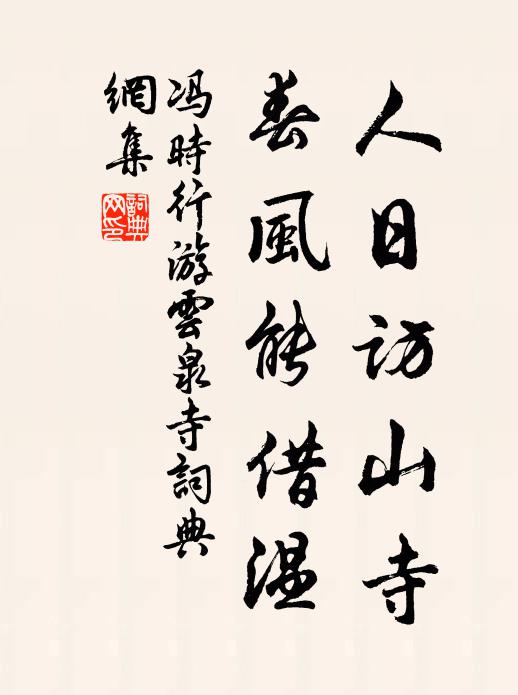 人日访山寺
春風能借温
冯時行游雲泉寺詞典
網集
詞典
网印